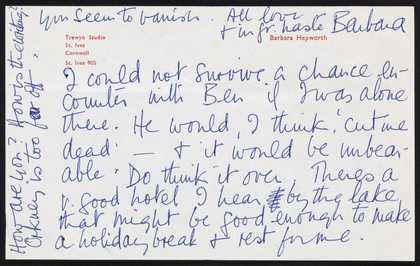 you seem to vanish. All love
& in gt. haste Barbara
Trewyn Studio
St. Ives
Cornwall
St. Ives 905
Barbara Hepworth
I could not survive a chance En-
counter with Ben if I was alone
there. He would, I think, 'cut me
dead' — & it would be unbear-
able. Do think it over. There's a
v. good hotel I hear by the lake
that might be good enough to make
a holiday break & rest for me.
How are you? How is the
Orkney is too far off.